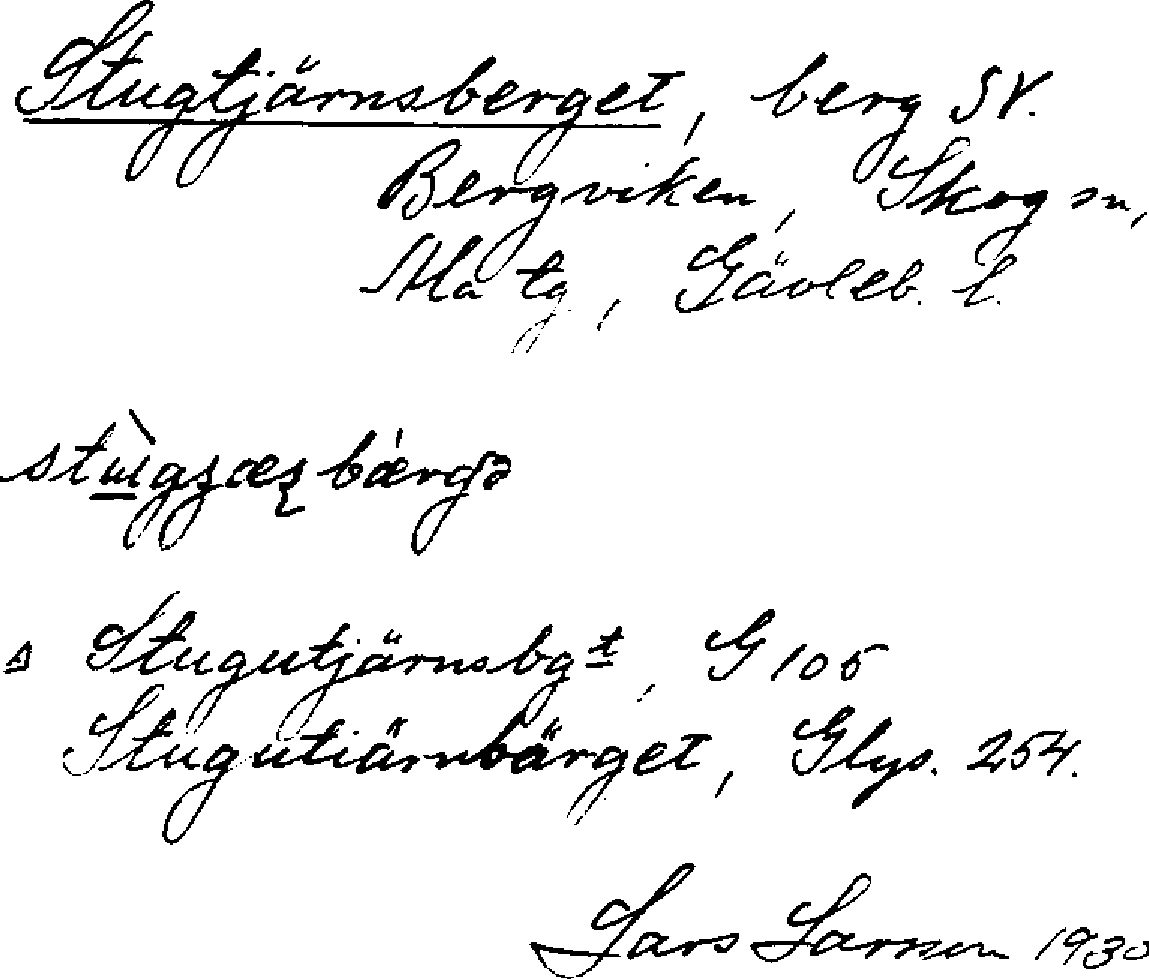 Stugtjärnsberget, berg SV.
Bergviken, Skog sn,
Ala tg, Gävleb. l.
Stugutjärnsbgt, G 105
Stugutiärnbärget, Glys. 254.
Lars Larsson 1930